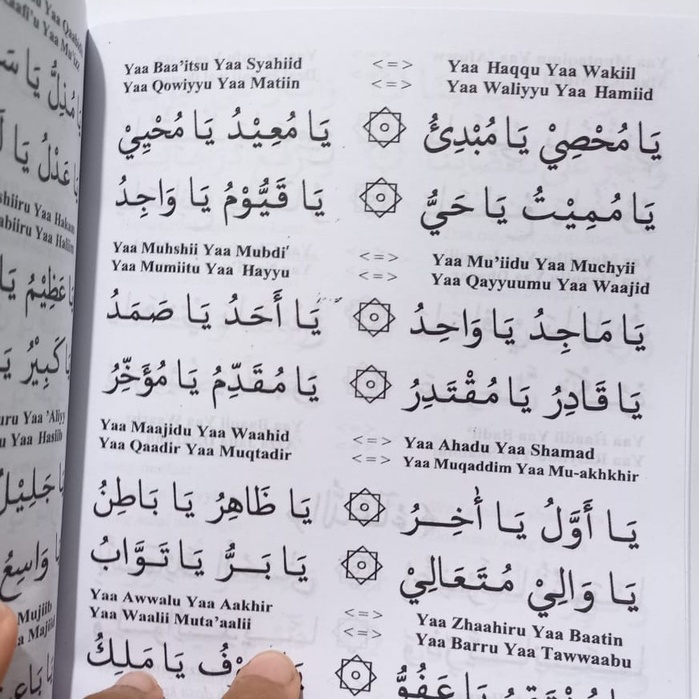 Yaa Baa'itsu Yaa Syahiid <=> Yaa Haqqu Yaa Wakiil
Yaa Qowiyyu Yaa Matiin <=> Yaa Waliyyu Yaa Hamiid
يَا مُحْصِيْ يَا مُبْدِئُ ۞ يَا مُعِيْدُ يَا مُحْيِيْ
يَا مُمِيْتُ يَا حَيُّ ۞ يَا قَيُّوْمُ يَا وَاجِدُ
Yaa Muhshii Yaa Mubdi' <=> Yaa Mu'iidu Yaa Muchyii
Yaa Mumiitu Yaa Hayyu <=> Yaa Qayyuumu Yaa Waajid
يَا مَاجِدُ يَا وَاحِدُ ۞ يَا أَحَدُ يَا صَمَدُ
يَا قَادِرُ يَا مُقْتَدِرُ ۞ يَا مُقَدِّمُ يَا مُؤَخِّرُ
Yaa Maajidu Yaa Waahid <=> Yaa Ahadu Yaa Shamad
Yaa Qaadir Yaa Muqtadir <=> Yaa Muqaddim Yaa Mu-akhkhir
يَا أَوَّلُ يَا أٰخِرُ ۞ يَا ظَاهِرُ يَا بَاطِنُ
يَا وَالِيْ مُتَعَالِيْ ۞ يَا بَرُّ يَا تَوَّابُ
Yaa Awwalu Yaa Aakhir <=> Yaa Zhaahiru Yaa Baatin
Yaa Waalii Muta'aalii <=> Yaa Barru Yaa Tawwaabu
يَا عَفُوُّ ۞ يَا مَلِكُ